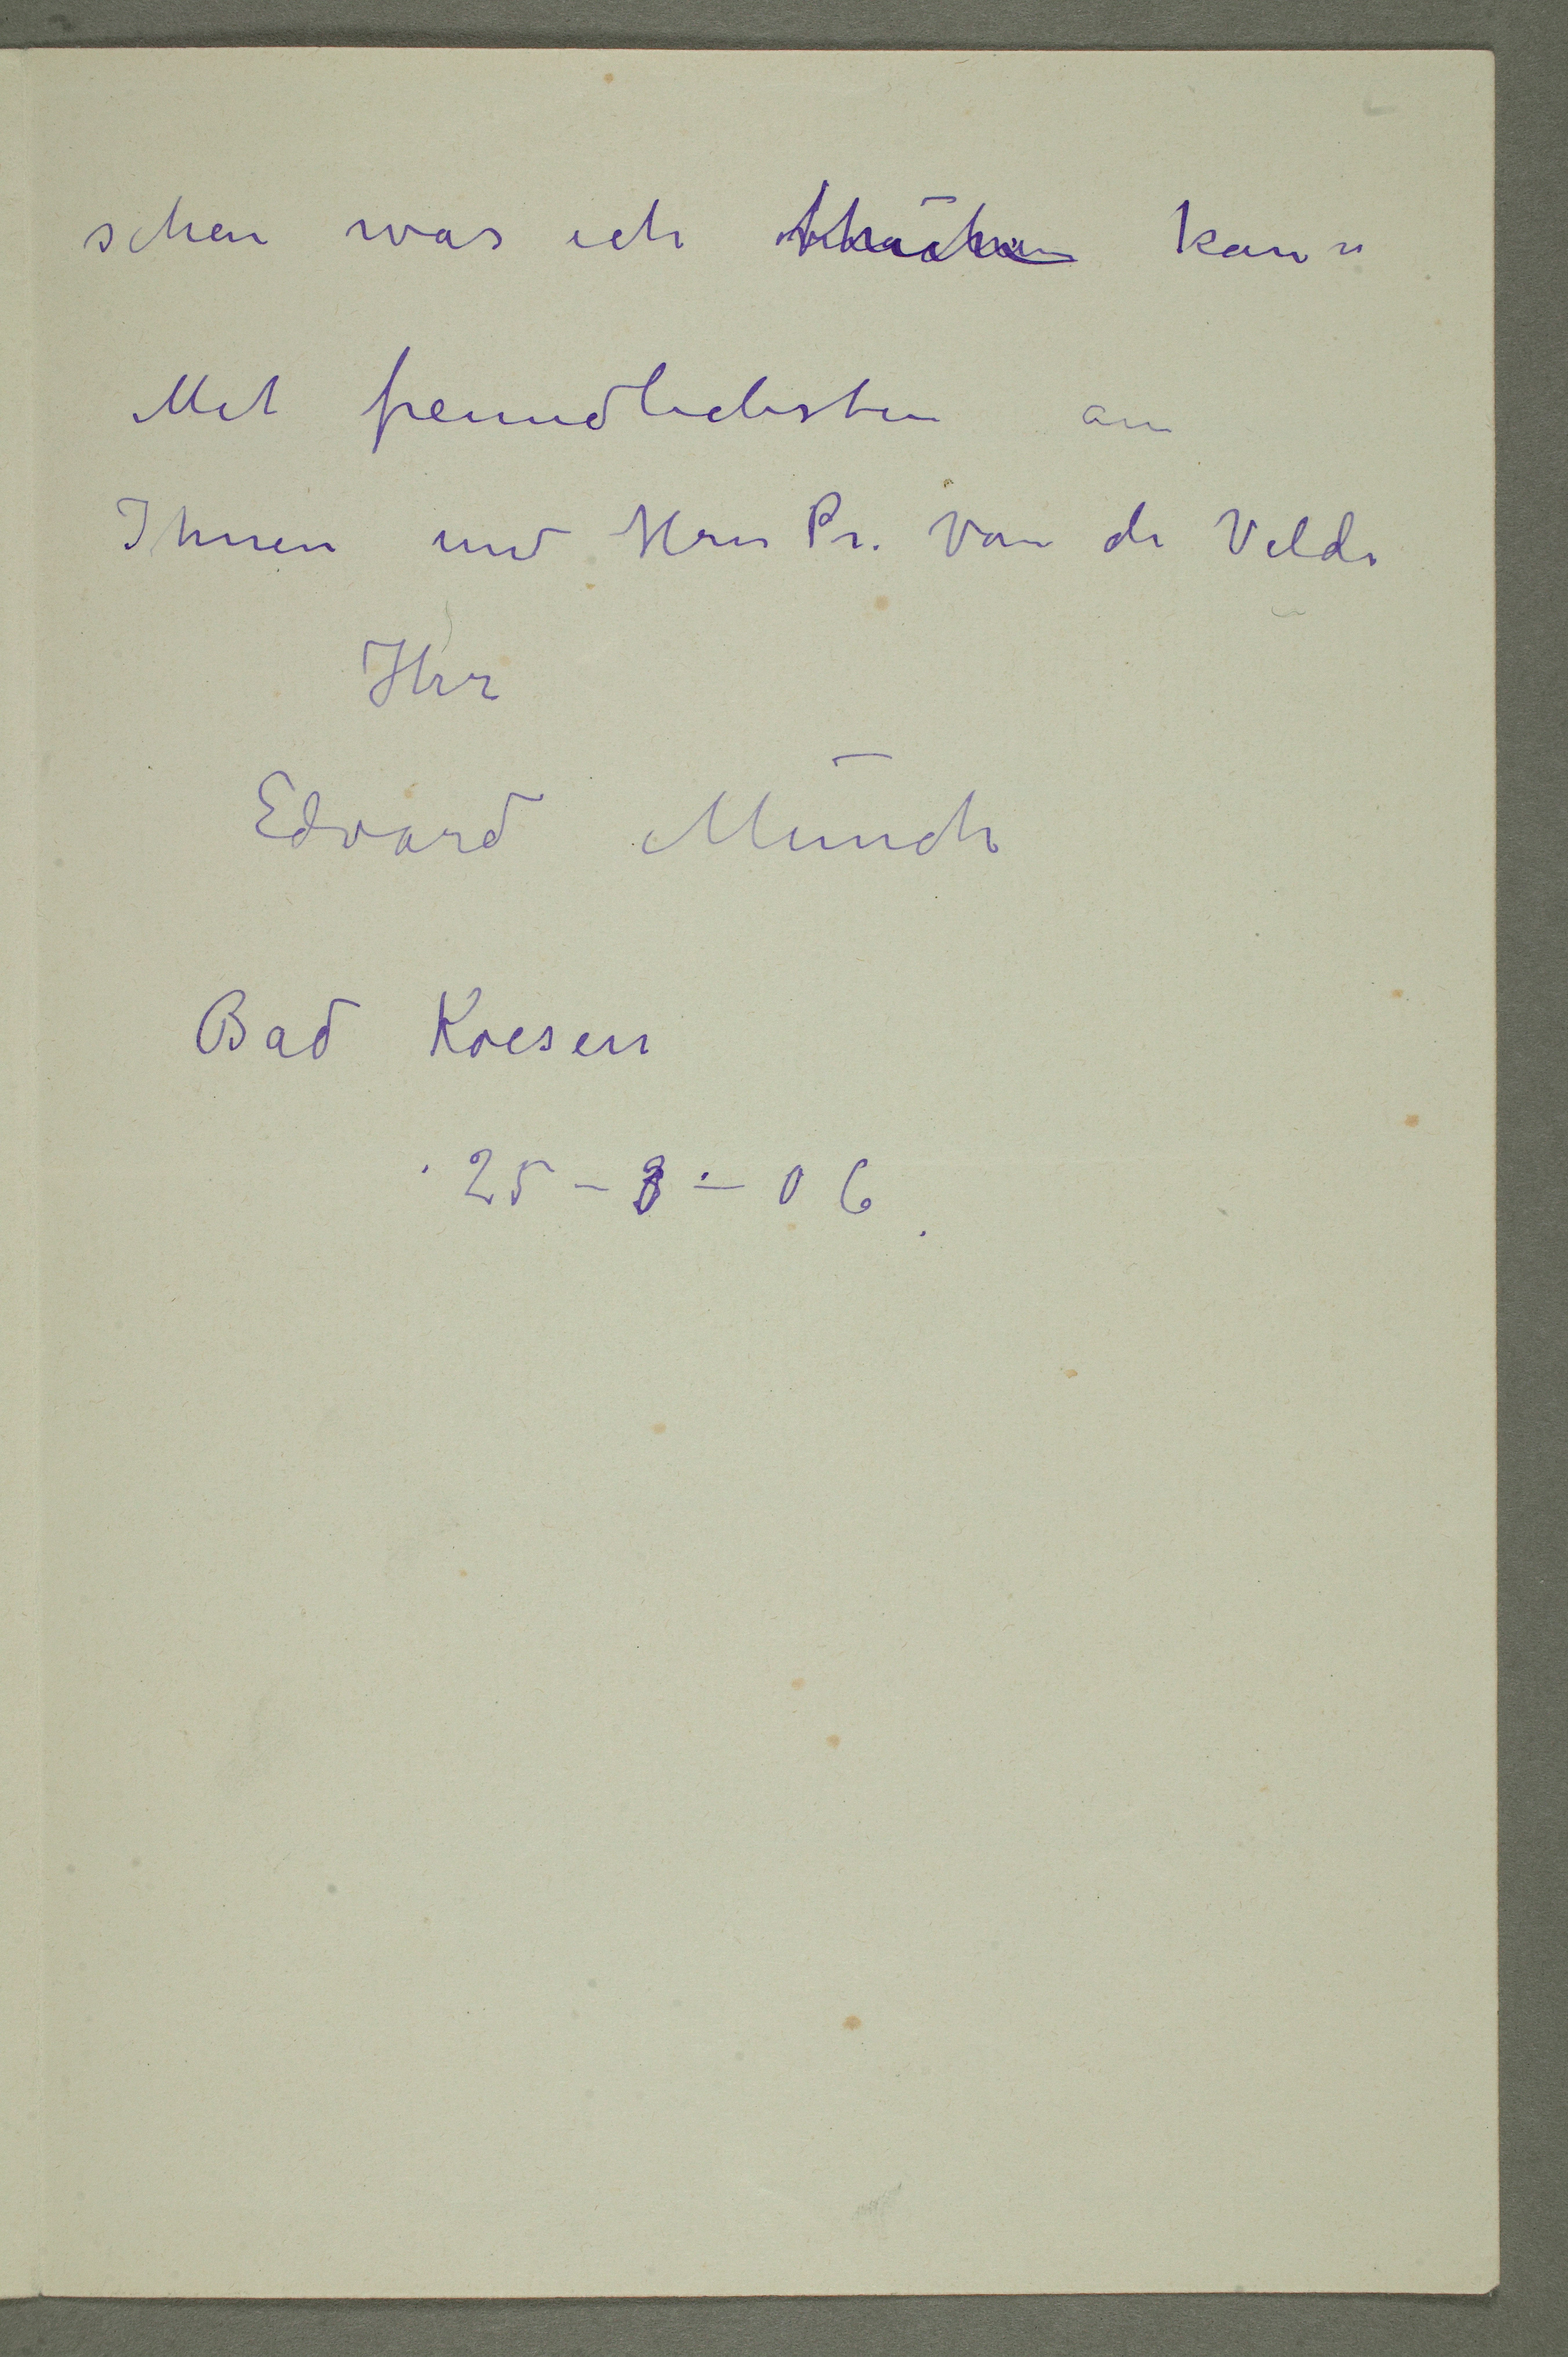 sehen was ich thun kann
Mit freundlichsten an
Ihnen und Hrn Pr. Van de Velde
Ihr
Edvard Munch
Bad Koesen
25–3–06.